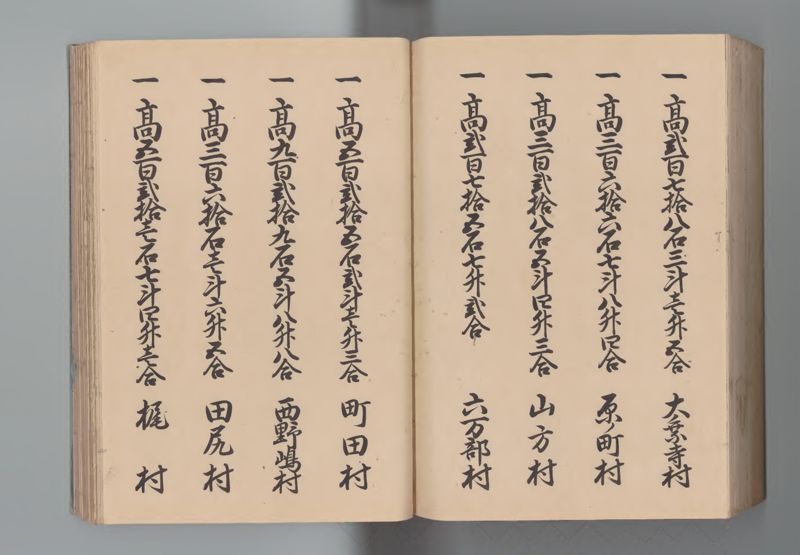 一 高弐百七拾八石三斗壱升五合 大乗寺村
一 高三百六拾六石七斗八升四合 原ノ町村
一 高三百弐拾八石五斗四升三合 山方村
一 高弐百七拾五石七升弐合 六万部村
一 高五百弐拾五石弐斗壱升三合 町田村
一 高九百弐拾九石五斗八升八合 西野嶋村
一 高三百六拾石壱斗六升五合 田尻村
一 高五百弐拾壱石七斗四升壱合 梶村